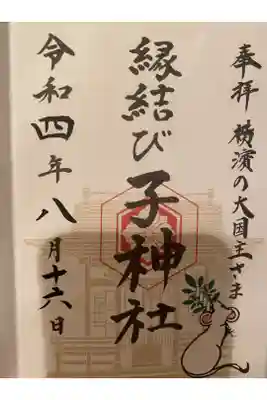 奉拝 横濱の大国主さま
縁結び子神社
令和四年八月十六日